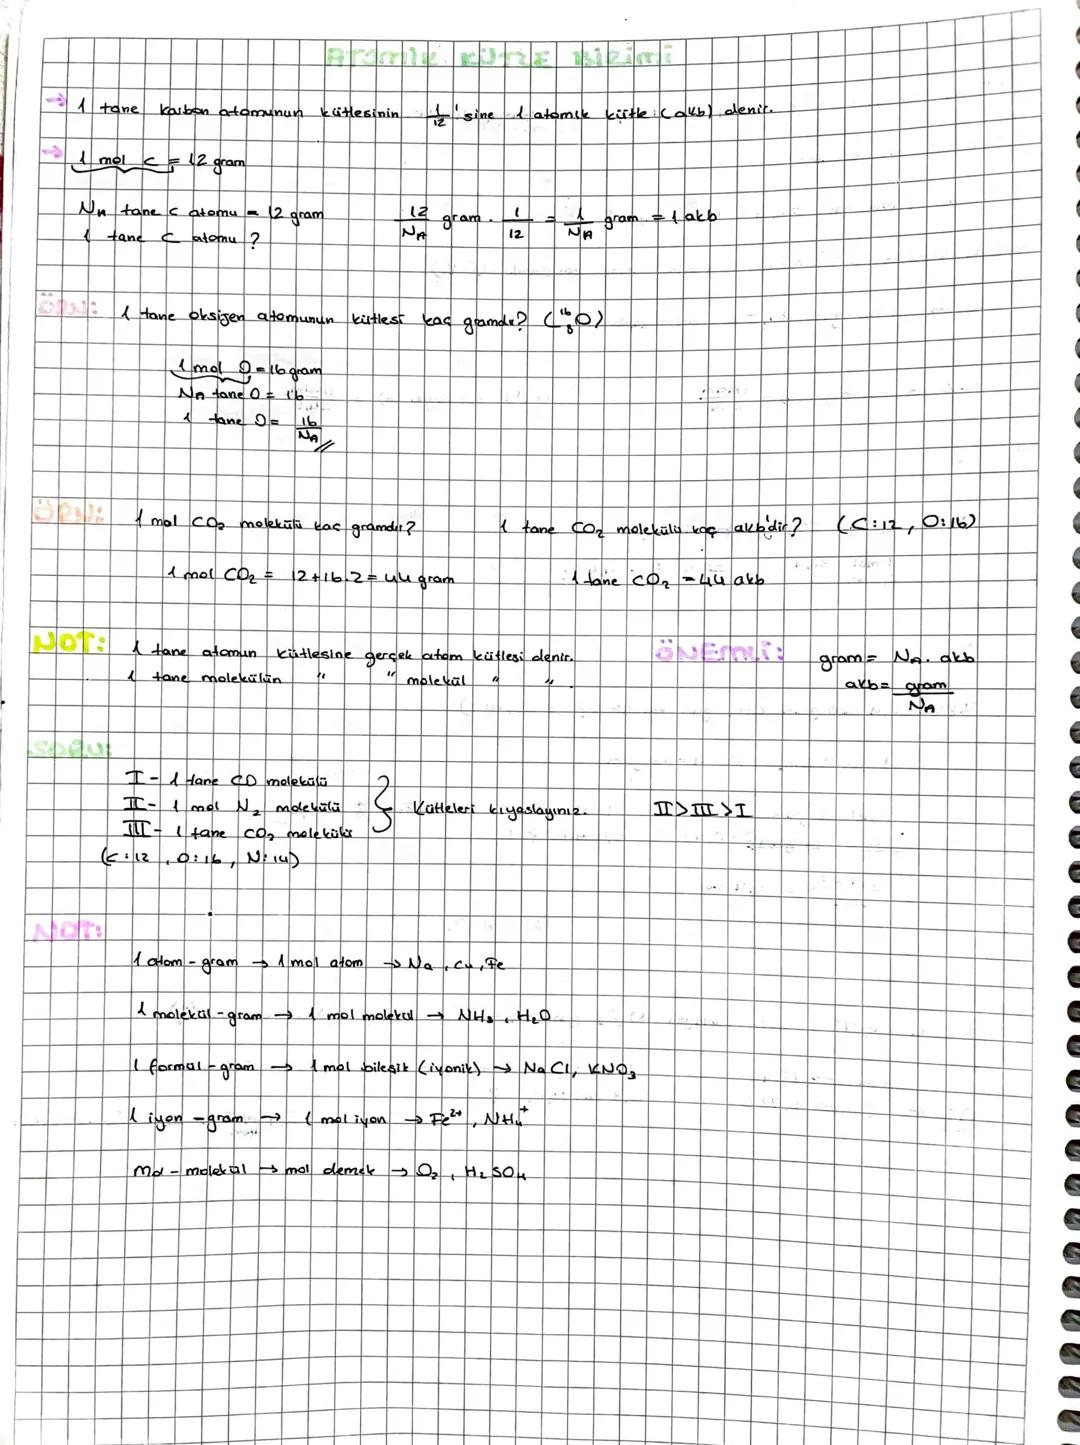 ATOMİK KÜTLE BİRİMİ
→ 1 tane karbon atomunun kütlesinin 1/12'sine 1 atomik kütle (akb) denir.
→ 1 mol C = 12 gram
NA tane C atomu = 12 gram   12/NA gram . 1/12 = 1/NA gram = 1 akb
1 tane C atomu ?
ÖRN: 1 tane oksijen atomunun kütlesi kaç gramdır? (¹⁶₈O)
1 mol O = 16 gram
NA tane O = 16
1 tane O = 16/NA //
ÖRN: 1 mol CO₂ molekülü kaç gramdır?   1 tane CO₂ molekülü kaç akb'dir? (C:12, O:16)
1 mol CO₂ = 12+16.2 = 44 gram   1 tane CO₂ = 44 akb
NOT: 1 tane atomun kütlesine gerçek atom kütlesi denir.   ÖNEMLİ: gram = NA. akb
1 tane molekülün " " molekül " "   akb = gram/NA
SORU:
I - 1 tane CO molekülü
II - 1 mol N₂ molekülü } Kütleleri kıyaslayınız.   II > III > I
III - 1 tane CO₂ molekülü
(C:12, O:16, N:14)
NOT:
1 atom-gram → 1 mol atom → Na, Cu, Fe
1 molekül-gram → 1 mol molekül → NH₃, H₂O
1 formül-gram → 1 mol bileşik (iyonik) → NaCl, KNO₃
1 iyon-gram → 1 mol iyon → Fe²⁺, NH₄⁺
mol-molekül → mol demek → O₂, H₂SO₄